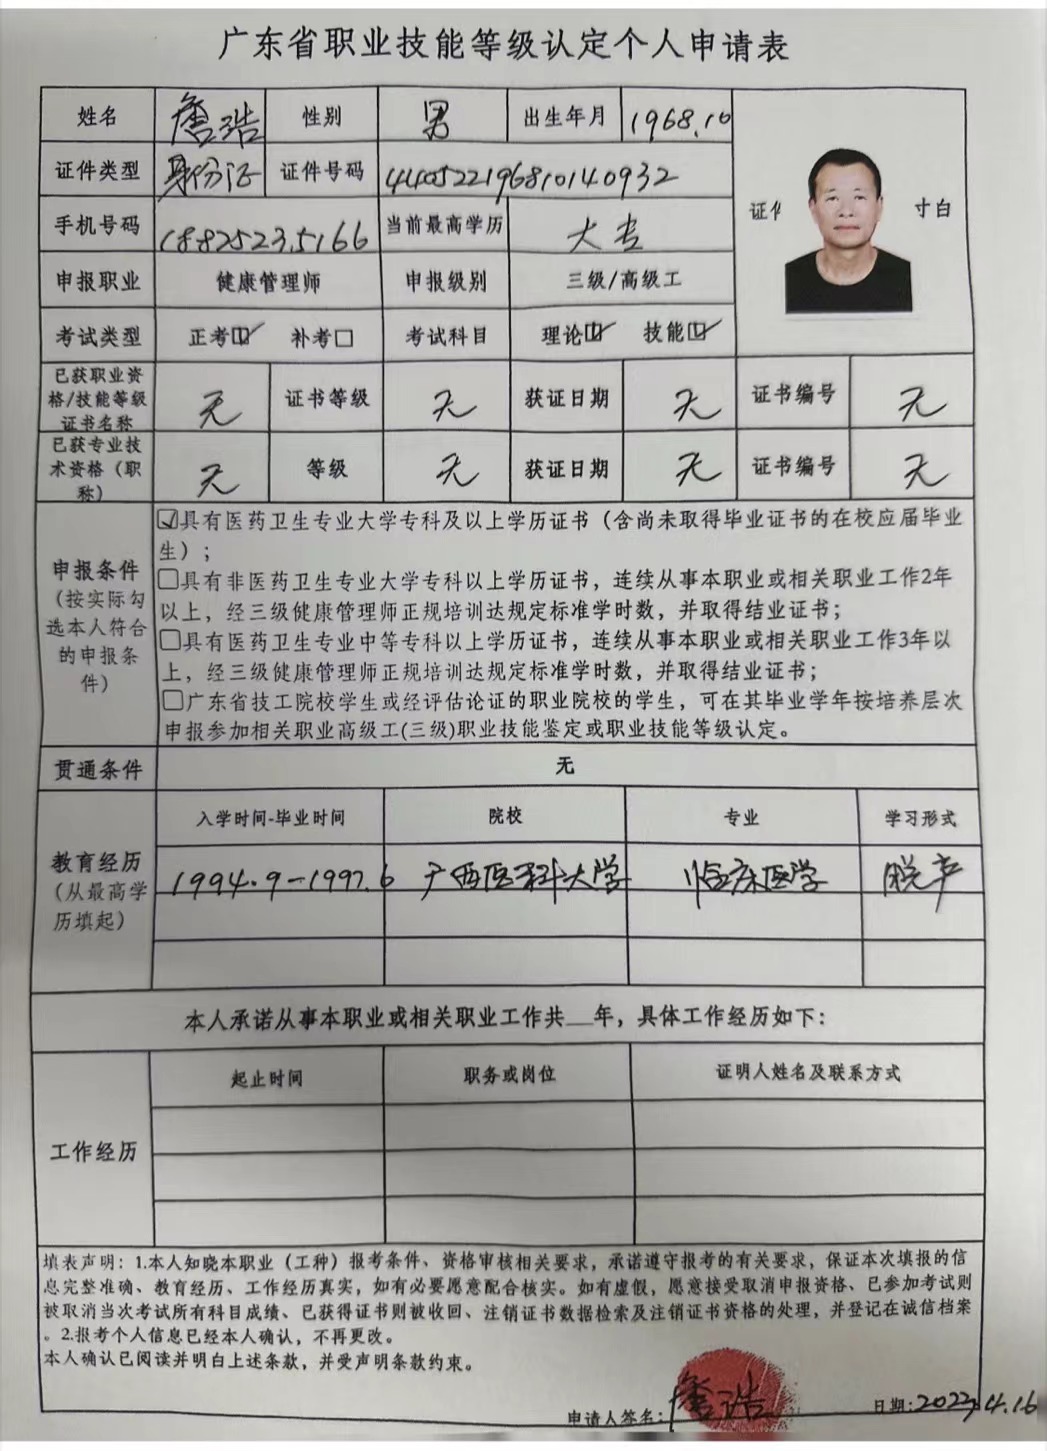 广东省职业技能等级认定个人申请表
姓名 詹浩 性别 男 出生年月 1968.10
证件类型 身份证 证件号码 440522196810140932
证件 寸白
手机号码 18825235166 当前最高学历 大专
申报职业 健康管理师 申报级别 三级/高级工
考试类型 正考☑ 补考□ 考试科目 理论☑ 技能☑
已获职业资格/技能等级证书名称 无 证书等级 无 获证日期 无 证书编号 无
已获专业技术资格（职称） 无 等级 无 获证日期 无 证书编号 无
申报条件
（按实际勾
选本人符合
的申报条
件）
☑具有医药卫生专业大学专科及以上学历证书（含尚未取得毕业证书的在校应届毕业
生）；
□具有非医药卫生专业大学专科以上学历证书，连续从事本职业或相关职业工作2年
以上，经三级健康管理师正规培训达规定标准学时数，并取得结业证书；
□具有医药卫生专业中等专科以上学历证书，连续从事本职业或相关职业工作3年以
上，经三级健康管理师正规培训达规定标准学时数，并取得结业证书；
□广东省技工院校学生或经评估论证的职业院校的学生，可在其毕业学年按培养层次
申报参加相关职业高级工(三级)职业技能鉴定或职业技能等级认定。
贯通条件 无
教育经历
（从最高学
历填起）
入学时间-毕业时间 院校 专业 学习形式
1994.9-1997.6 广西医科大学 临床医学 脱产
本人承诺从事本职业或相关职业工作共__年，具体工作经历如下：
工作经历
起止时间 职务或岗位 证明人姓名及联系方式
填表声明：1.本人知晓本职业（工种）报考条件、资格审核相关要求，承诺遵守报考的有关要求，保证本次填报的信
息完整准确、教育经历、工作经历真实，如有必要愿意配合核实。如有虚假，愿意接受取消申报资格、已参加考试则
被取消当次考试所有科目成绩、已获得证书则被收回、注销证书数据检索及注销证书资格的处理，并登记在诚信档案
。2.报考个人信息已经本人确认，不再更改。
本人确认已阅读并明白上述条款，并受声明条款约束。
申请人签名：詹浩 日期：2023.4.16